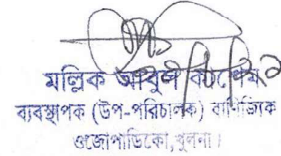 মল্লিক আবুল
ব্যবস্থাপক (উপ-পরিচালক) বাণিজ্যিক
ওজোপাডিকো, খুলনা।